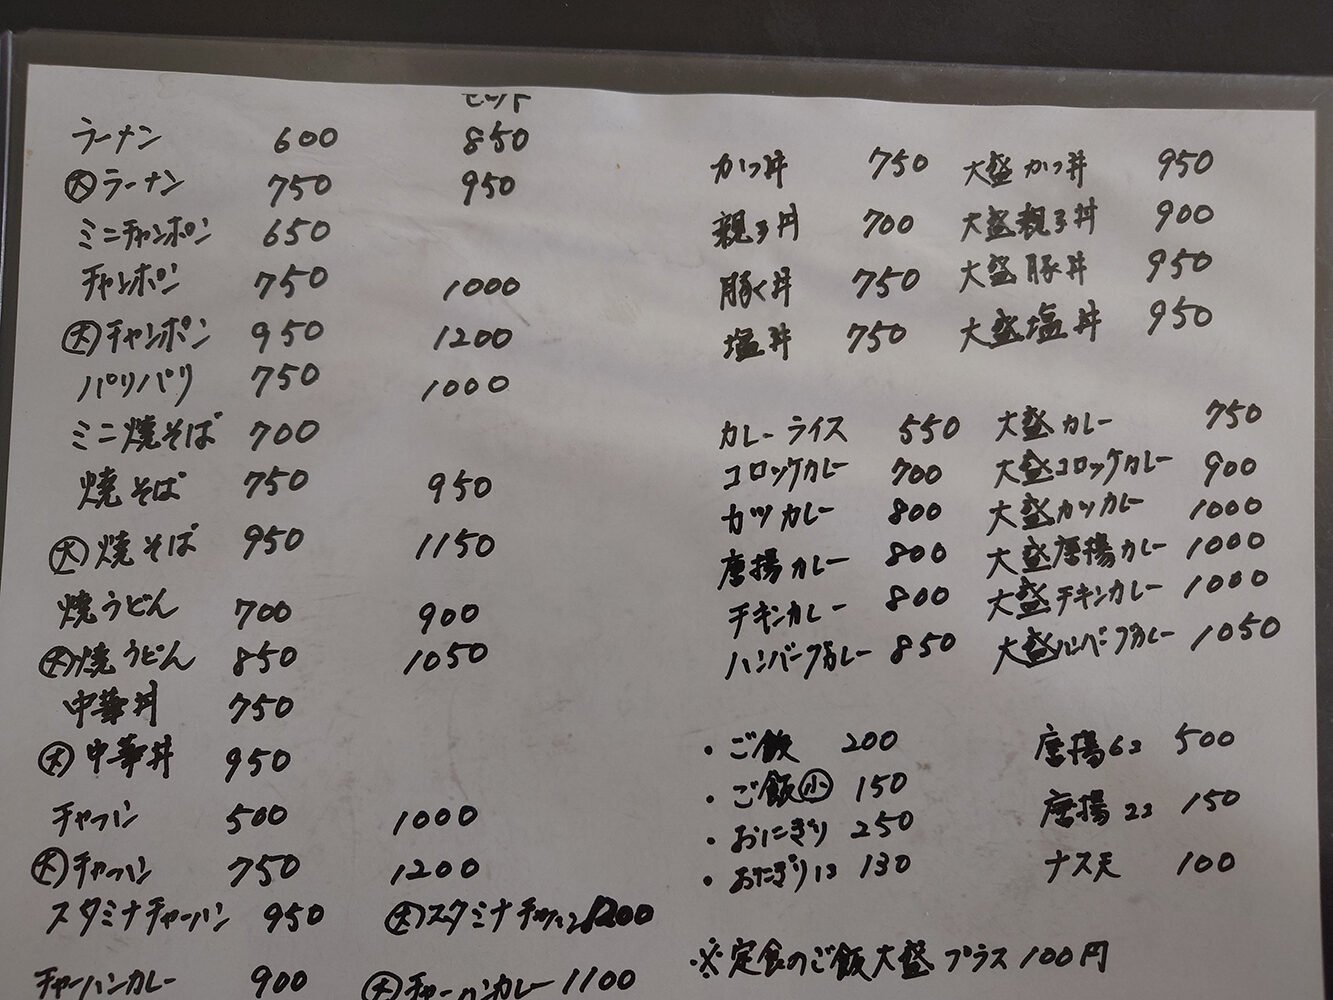 セット
ラーメン 600 850
大ラーメン 750 950
ミニチャンポン 650
チャンポン 750 1000
大チャンポン 950 1200
パリパリ 750 1000
ミニ焼そば 700
焼そば 750 950
大焼そば 950 1150
焼うどん 700 900
大焼うどん 850 1050
中華丼 750
大中華丼 950
チャーハン 500 1000
大チャーハン 750 1200
スタミナチャーハン 950 大スタミナチャーハン 1200
チャーハンカレー 900 大チャーハンカレー 1100
かつ丼 750 大盛かつ丼 950
親子丼 700 大盛親子丼 900
豚く丼 750 大盛豚丼 950
塩丼 750 大盛塩丼 950
カレーライス 550 大盛カレー 750
コロッケカレー 700 大盛コロッケカレー 900
カツカレー 800 大盛カツカレー 1000
唐揚カレー 800 大盛唐揚カレー 1000
チキンカレー 800 大盛チキンカレー 1000
ハンバーグカレー 850 大盛ハンバーグカレー 1050
・ご飯 200 唐揚6コ 500
・ご飯小 150 唐揚2コ 150
・おにぎり 250 ナス天 100
・おにぎり1コ 130
※定食のご飯大盛プラス100円